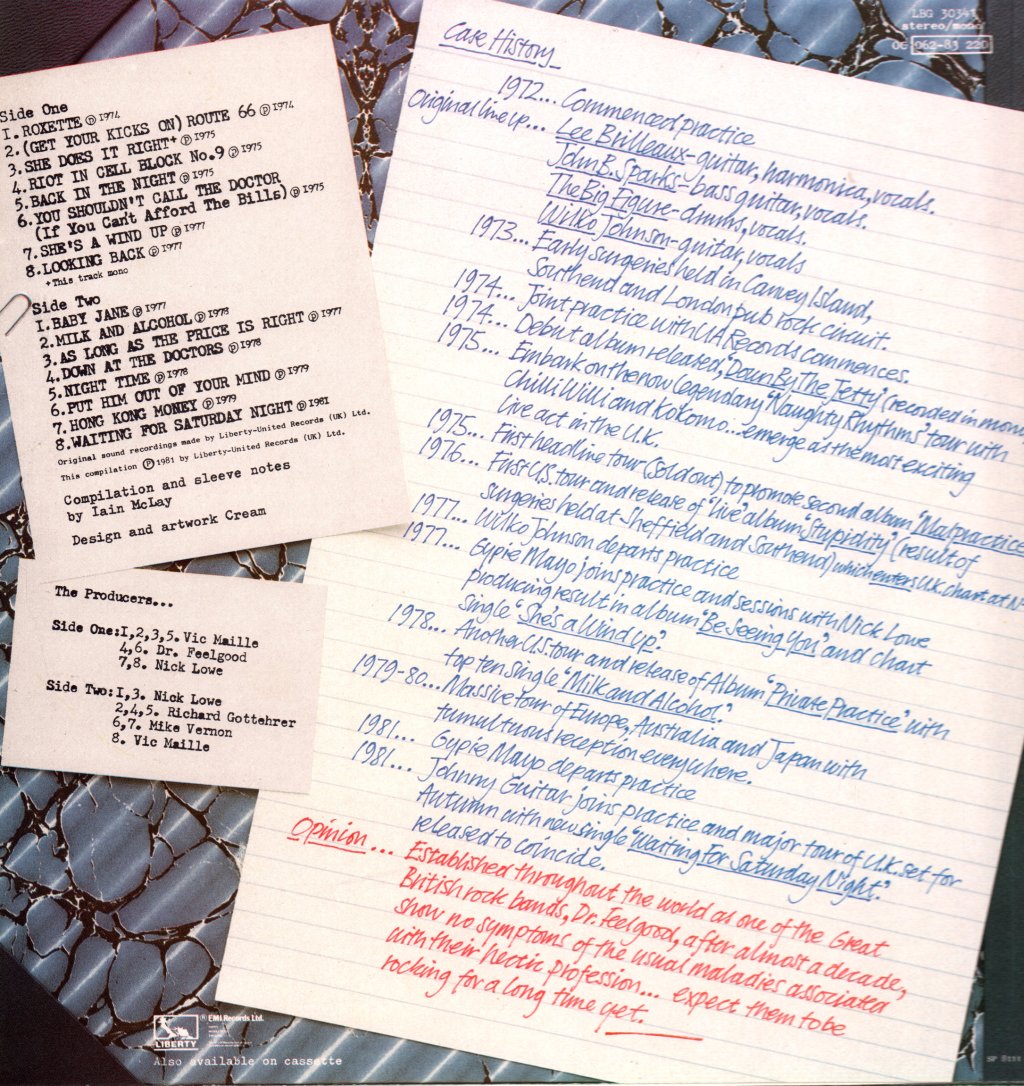 LBG 30341
stereo/mono
OC 062-83 220
Side One
I. ROXETTE Ⓟ 1974
2. (GET YOUR KICKS ON) ROUTE 66 Ⓟ 1974
3. SHE DOES IT RIGHT+ Ⓟ 1975
4. RIOT IN CELL BLOCK No.9 Ⓟ 1975
5. BACK IN THE NIGHT Ⓟ 1975
6. YOU SHOULDN'T CALL THE DOCTOR
(If You Can't Afford The Bills) Ⓟ 1975
7. SHE'S A WIND UP Ⓟ 1977
8. LOOKING BACK Ⓟ 1977
+This track mono
Side Two
I. BABY JANE Ⓟ 1977
2. MILK AND ALCOHOL Ⓟ 1978
3. AS LONG AS THE PRICE IS RIGHT Ⓟ 1977
4. DOWN AT THE DOCTORS Ⓟ 1978
5. NIGHT TIME Ⓟ 1978
6. PUT HIM OUT OF YOUR MIND Ⓟ 1979
7. HONG KONG MONEY Ⓟ 1979
8. WAITING FOR SATURDAY NIGHT Ⓟ 1981
Original sound recordings made by Liberty-United Records (UK) Ltd.
This compilation Ⓟ 1981 by Liberty-United Records (UK) Ltd.
Compilation and sleeve notes
by Iain McLay
Design and artwork Cream
The Producers...
Side One: I,2,3,5. Vic Maille
4,6. Dr. Feelgood
7,8. Nick Lowe
Side Two: I,3. Nick Lowe
2,4,5. Richard Gottehrer
6,7. Mike Vernon
8. Vic Maille
Case History
1972... Commenced practice
Original line up... Lee Brilleaux-guitar, harmonica, vocals.
John B. Sparks-bass guitar, vocals.
The Big Figure-drums, vocals.
Wilko Johnson-guitar, vocals
1973... Early surgeries held in Canvey Island,
Southend and London pub rock circuit.
1974... Joint practice with UA Records commences.
1974... Debut album released, "Down By The Jetty" (recorded in mono)
1975... Embark on the now legendary "Naughty Rhythms" tour with
Chilli Willi and Kokomo... emerge as the most exciting
live act in the U.K.
1975... First headline tour (sold out) to promote second album "Malpractice"
1976... First U.S. tour and release of "live" album "Stupidity" (result of
surgeries held at Sheffield and Southend) which enters U.K. chart at Nº
1977... Wilko Johnson departs practice
1977... Gypie Mayo joins practice and sessions with Nick Lowe
producing result in album "Be Seeing You" and chart
single "She's a Wind Up".
1978... Another U.S. tour and release of Album "Private Practice" with
top ten single "Milk and Alcohol".
1979-80... Massive tour of Europe, Australia and Japan with
tumultuous reception everywhere.
1981... Gypie Mayo departs practice
1981... Johnny Guitar joins practice and major tour of U.K. set for
Autumn with new single "Waiting For Saturday Night".
released to coincide.
Opinion... Established throughout the world as one of the Great
British rock bands, Dr. Feelgood, after almost a decade,
show no symptoms of the usual maladies associated
with their hectic profession... expect them to be
rocking for a long time yet.
LIBERTY
® EMI Records Ltd.
Also available on cassette